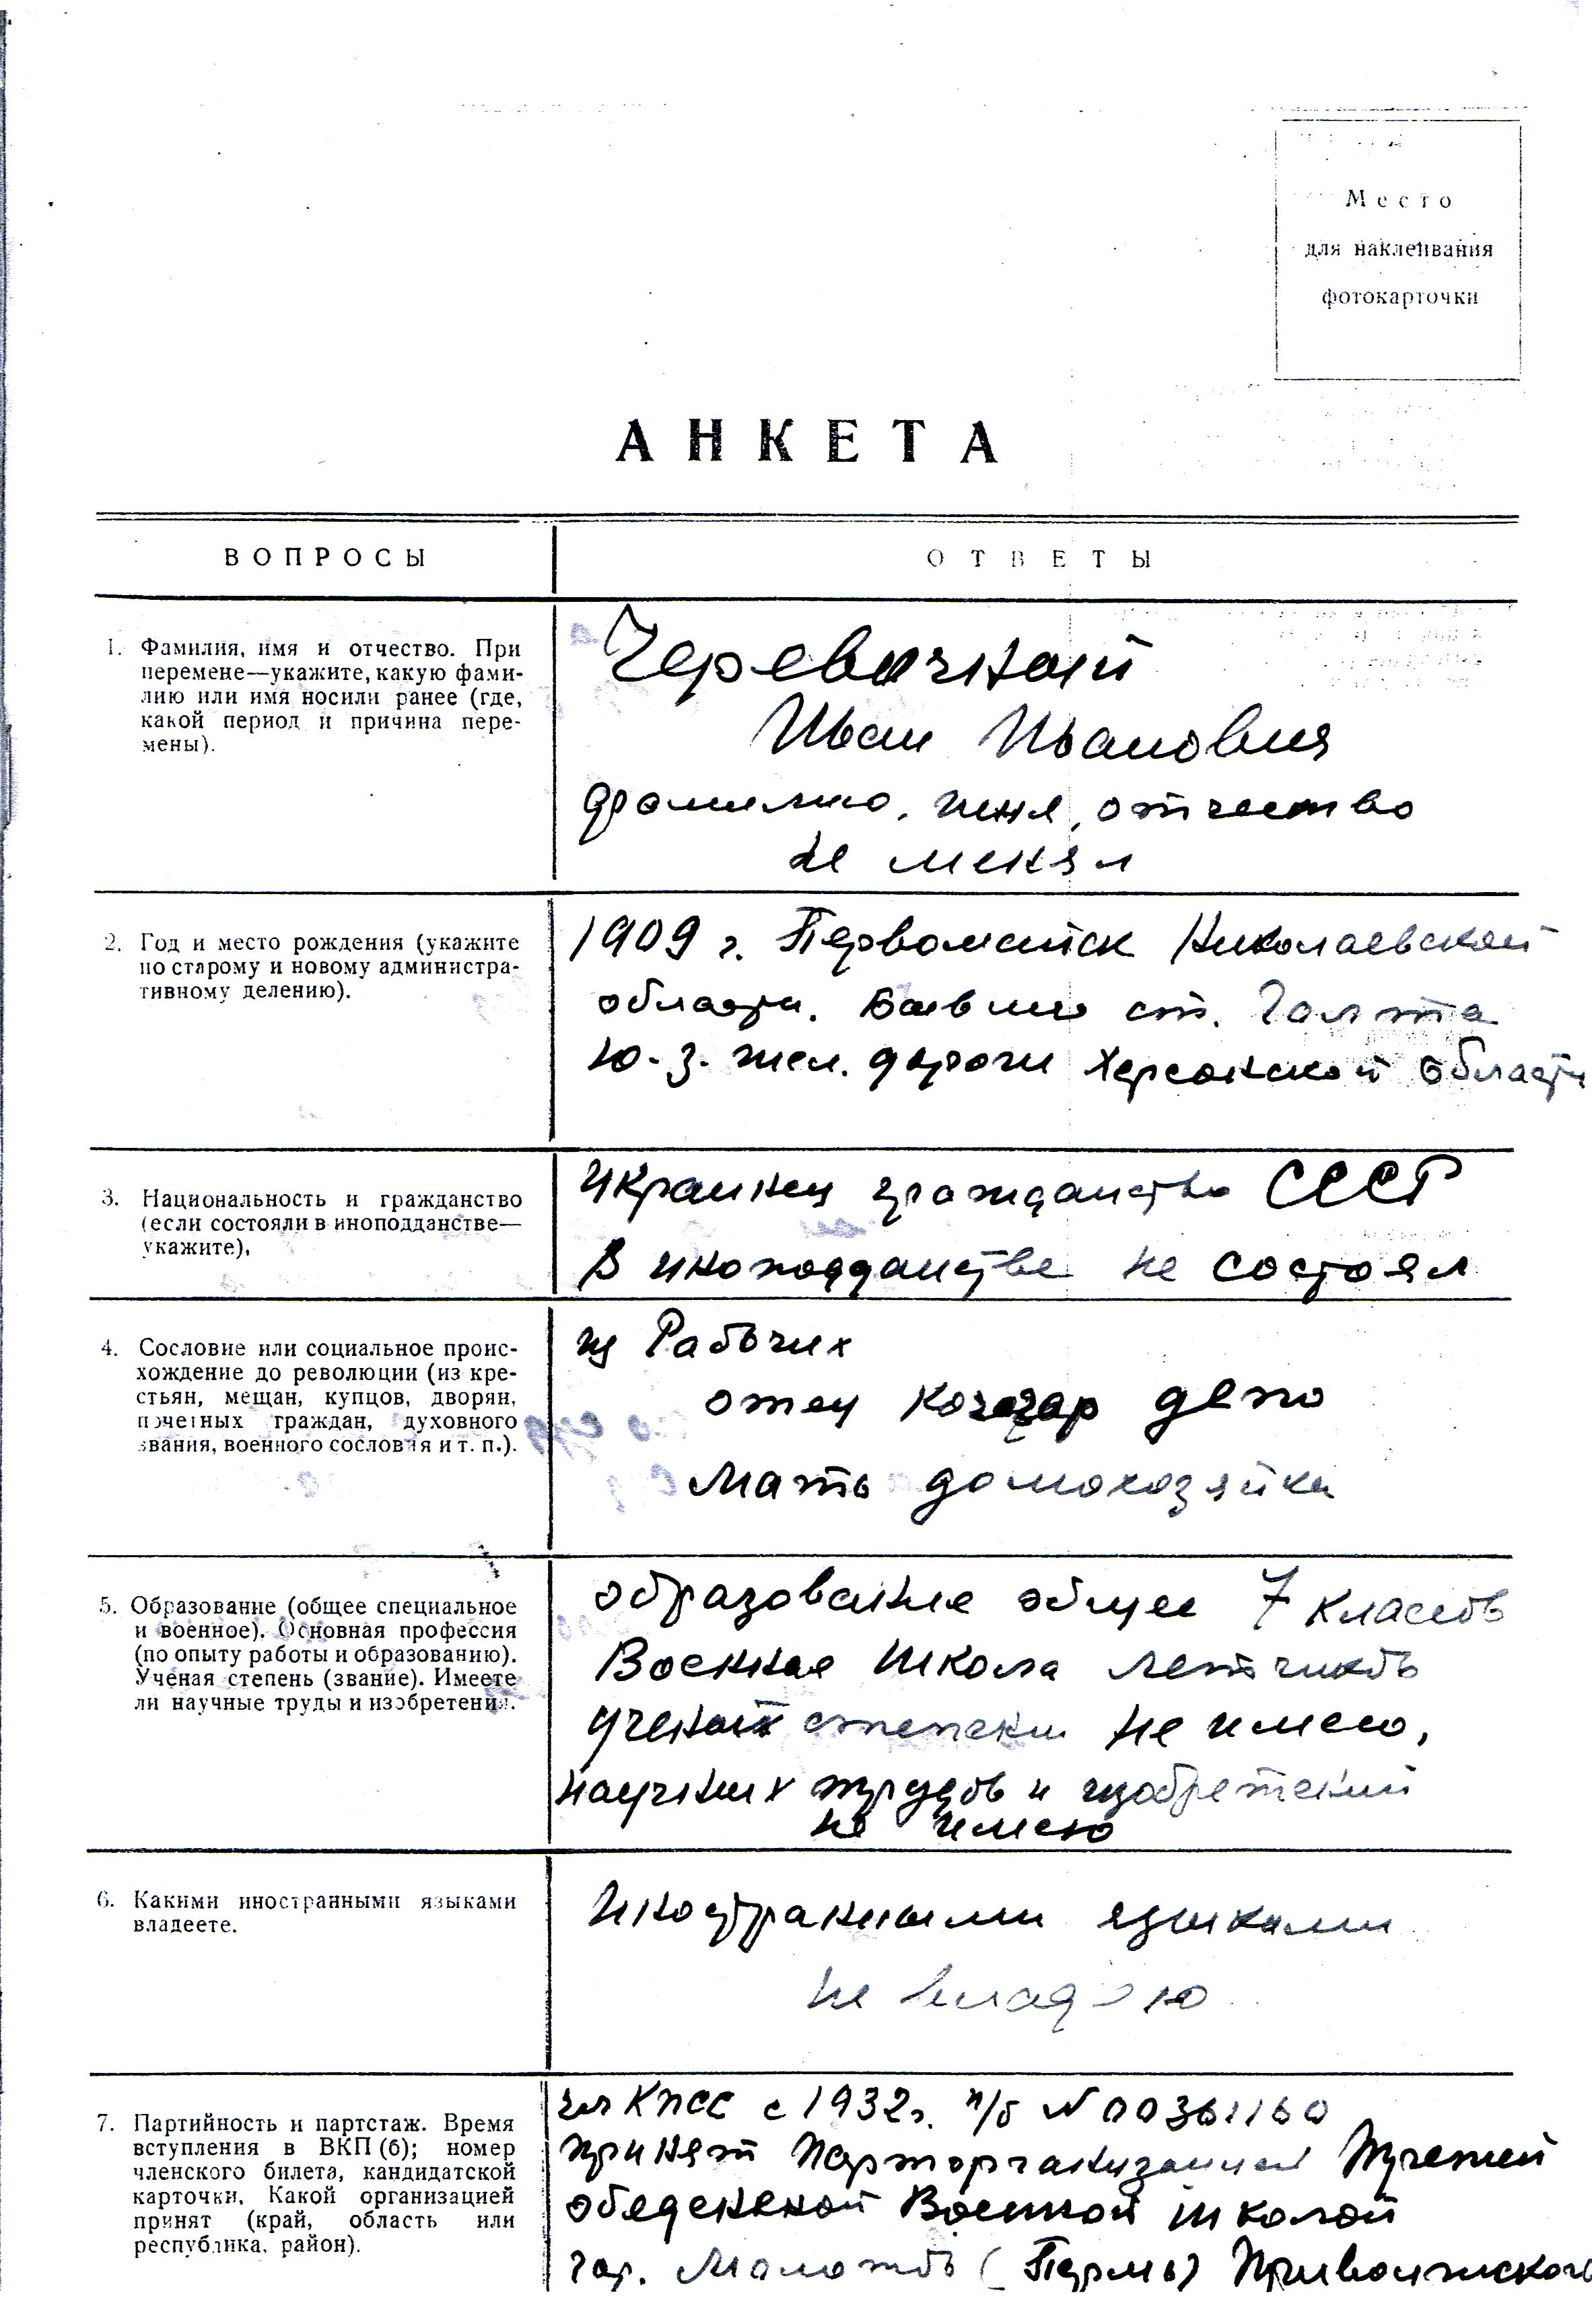 Место
для наклеивания
фотокарточки
АНКЕТА
ВОПРОСЫ
ОТВЕТЫ
1. Фамилия, имя и отчество. При
перемене—укажите, какую фами-
лию или имя носили ранее (где,
какой период и причина пере-
мены).
Черевичный
Иван Иванович
фамилию, имя, отчество
не менял
2. Год и место рождения (укажите
по старому и новому администра-
тивному делению).
1909 г. Первомайск Николаевской
области. Бывшие ст. Голта
Ю-З. жел. дороги Херсонской области
3. Национальность и гражданство
(если состояли в иноподданстве—
укажите),
Украинец гражданство СССР
В иноподданстве не состоял
4. Сословие или социальное проис-
хождение до революции (из кре-
стьян, мещан, купцов, дворян,
почетных граждан, духовного
звания, военного сословия и т. п.).
из Рабочих
отец кочегар депо
Мать домохозяйка
5. Образование (общее специальное
и военное). Основная профессия
(по опыту работы и образованию).
Ученая степень (звание). Имеете
ли научные труды и изобретения.
образование общее 7 классов
Военная школа летчиков
ученой степени не имею,
научных трудов и изобретений
не имею
6. Какими иностранными языками
владеете.
Иностранными языками
не владею
7. Партийность и партстаж. Время
вступления в ВКП (б); номер
членского билета, кандидатской
карточки. Какой организацией
принят (край, область или
республика, район).
чл КПСС с 1932г. п/б N 00361160
принят Парторганизацией Третей
обеденной Военной школой
гор. Молотов (Пермь) Приволжского